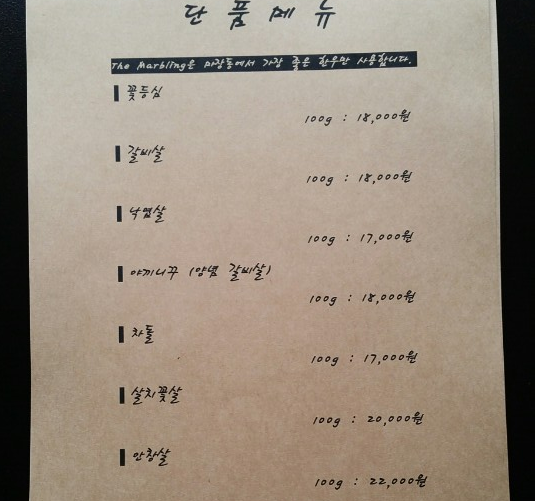 단품메뉴
The Marbling은 마장동에서 가장 좋은 한우만 사용합니다.
꽃등심
100g : 18,000원
갈비살
100g : 18,000원
낙엽살
100g : 17,000원
야끼니꾸 (양념 갈비살)
100g : 18,000원
차돌
100g : 17,000원
살치꽃살
100g : 20,000원
안창살
100g : 22,000원